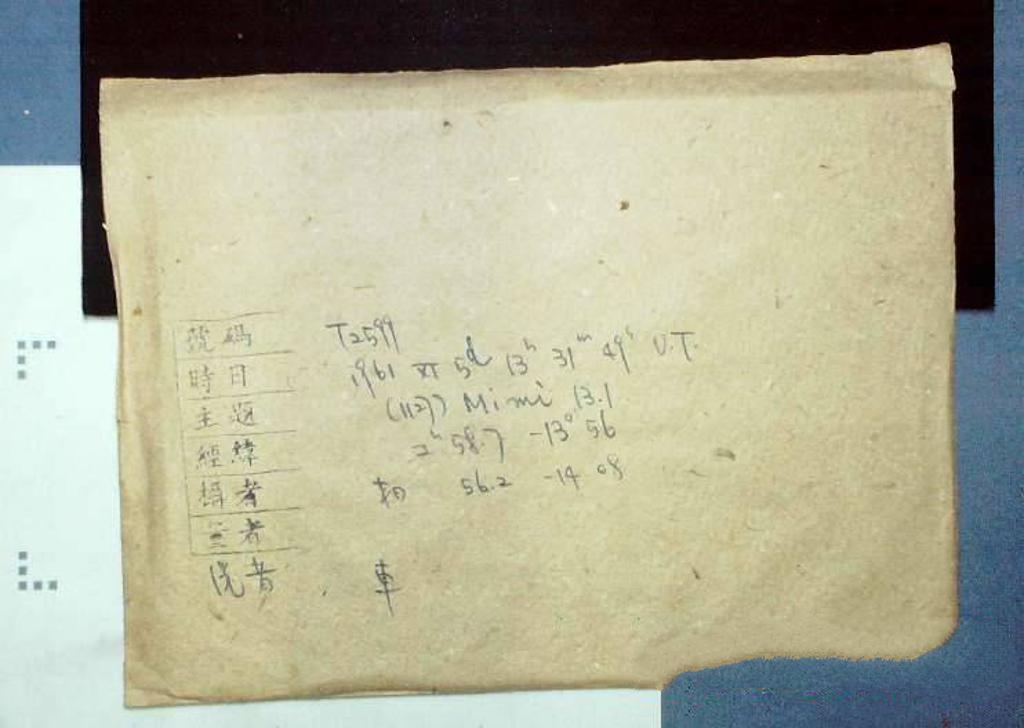 號碼 T2599
時日 1961 XI 5d 13h 31m 49s U.T.
主題 (1127) Mimi 13.1
經緯 2h 58.7 -13° 56
攝者 56.2 -14 08
者
洗者 車